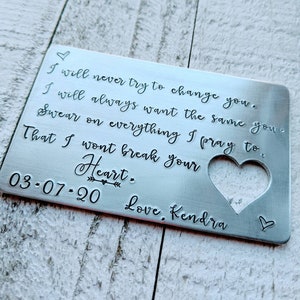 I will never try to change you.
I will always want the same you.
Swear on everything I pray to,
That I wont break your
Heart.
03·07·20
Love, Kendra